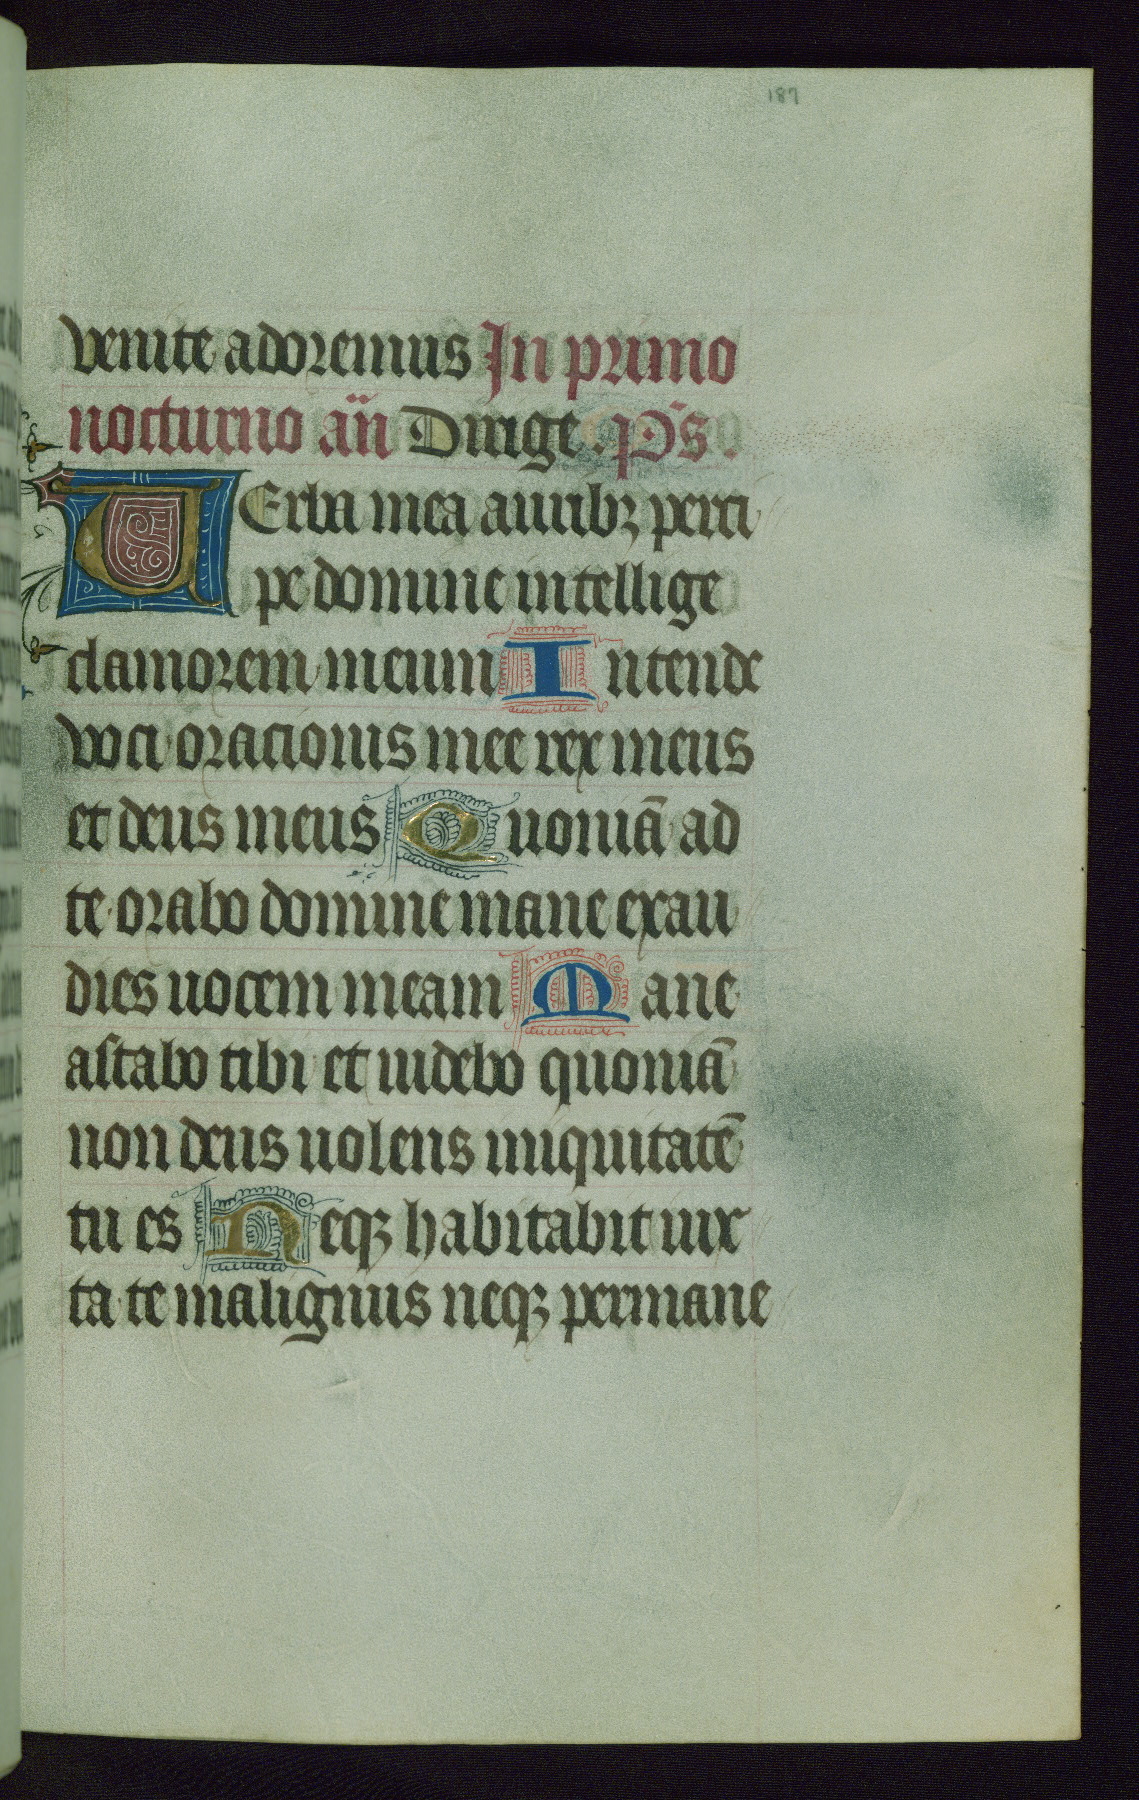 187
venite adoremus In primo
nocturno añ Dirige. p̄s.
UErba mea auribꝫ perci
pe domine intellige
clamorem meum Intende
voci oracionis mee rex meus
et deus meus Quoniā ad
te orabo domine mane exau
dies uocem meam Mane
astabo tibi et uidebo quoniā
non deus uolens iniquitatē
tu es Neqꝫ habitabit iux
ta te malignus neqꝫ permane